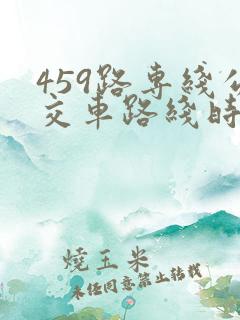 459路专綫公
交車路綫時
燒玉米
未經同意禁止轉載